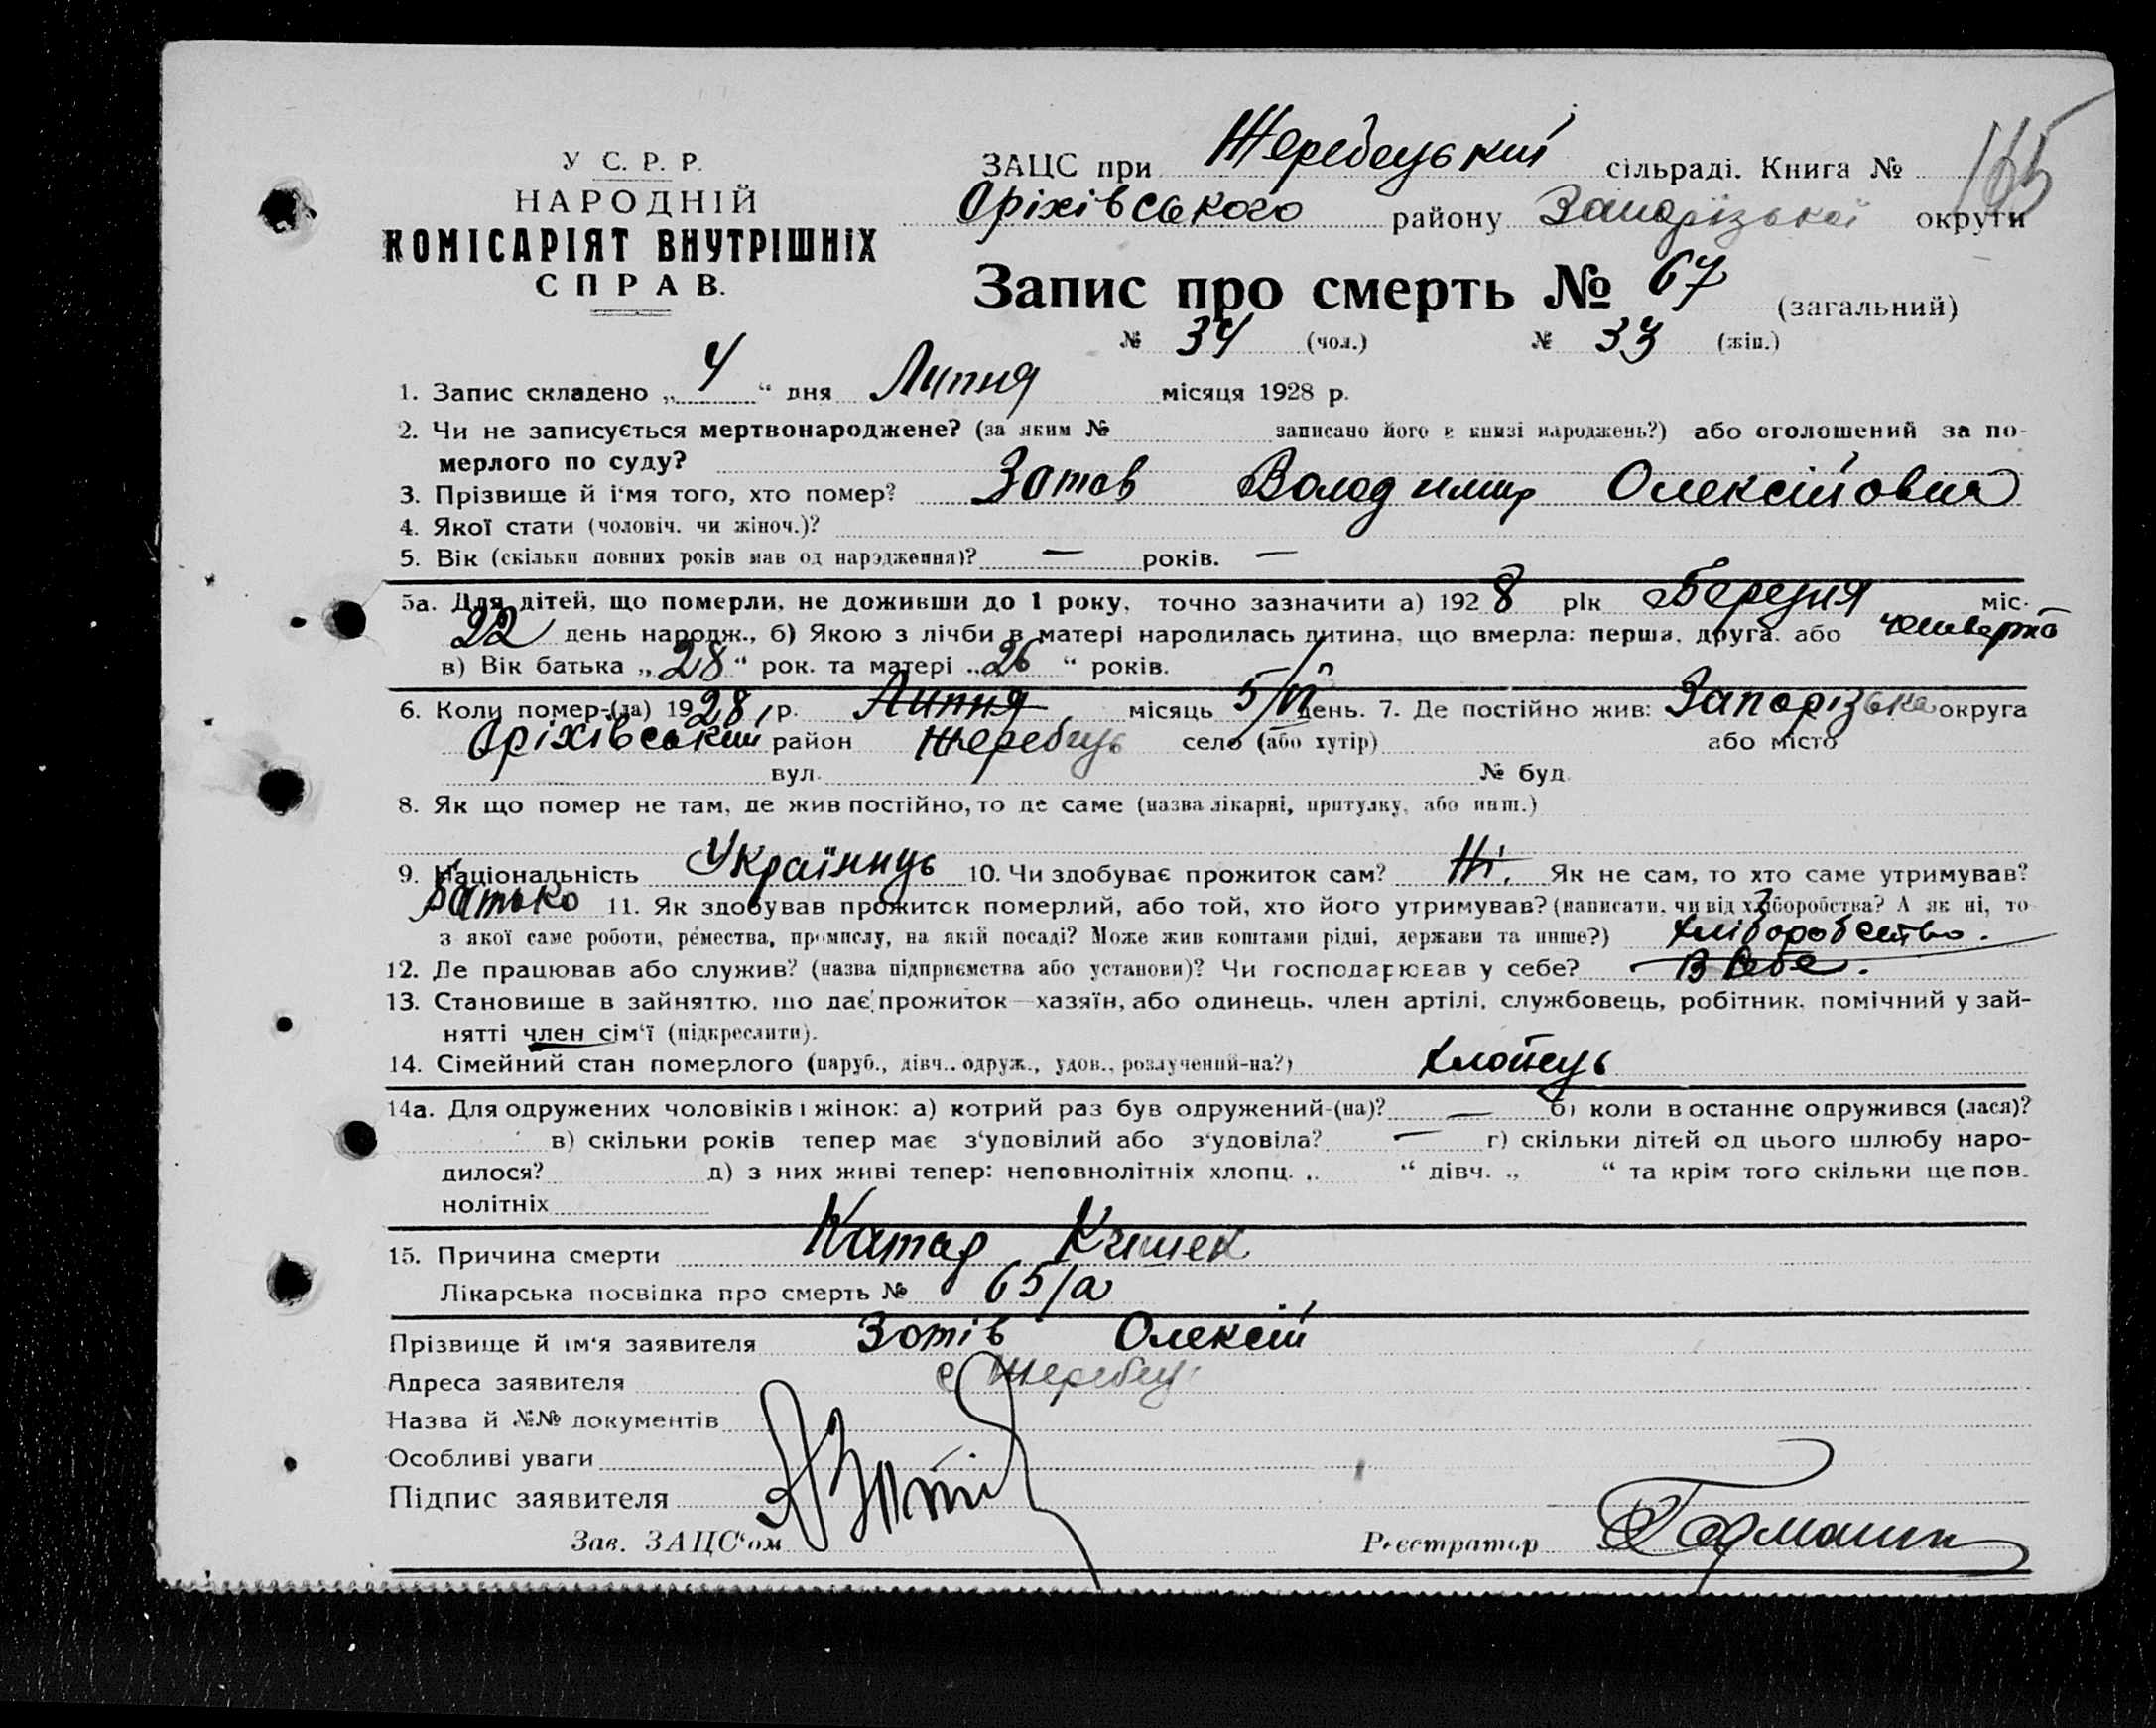 У С. Р. Р.
НАРОДНІЙ
КОМІСАРІЯТ ВНУТРІШНІХ
СПРАВ.
ЗАЦС при Жеребецький сільраді. Книга № 165
Оріхівського району Запорізької округи
Запис про смерть № 67 (загальний)
№ 34 (чол.) № 33 (жін.)
1. Запис складено „ 4 “ дня Липня місяця 1928 р.
2. Чи не записується мертвонароджене? (за яким № записано його в книзі народжень?) або оголошений за по-
мерлого по суду?
3. Прізвище й і‘мя того, хто помер? Зотов Володимир Олексійович
4. Якої стати (чоловіч. чи жіноч.)?
5. Вік (скільки повних років мав од народження)? — років. —
5а. Для дітей, що померли, не доживши до 1 року, точно зазначити а) 1928 рік Березня міс.
22 день народж., б) Якою з лічби в матері народилась дитина, що вмерла: перша, друга, або четверта
в) Вік батька „ 28 “ рок. та матері „ 26 “ років.
6. Коли помер-(ла) 1928 р. Липня місяць 5/VI день. 7. Де постійно жив: Запорізька округа
Оріхівський район Жеребець село (або хутір) або місто
вул. № буд.
8. Як що помер не там, де жив постійно, то де саме (назва лікарні, притулку, або инш.)
9. Національність Українець 10. Чи здобуває прожиток сам? Ні. Як не сам, то хто саме утримував?
Батько 11. Як здобував прожиток померлий, або той, хто його утримував? (написати, чи від хліборобства? А як ні, то
з якої саме роботи, ремества, промислу, на якій посаді? Може жив коштами рідні, держави та инше?) хліборобство.
12. Де працював або служив? (назва підприємства або установи)? Чи господарював у себе? В себе.
13. Становище в зайняттю, що дає прожиток—хазяїн, або одинець, член артілі, службовець, робітник, помічний у зай-
нятті член сім‘ї (підкреслити).
14. Сімейний стан померлого (паруб., дівч., одруж., удов., розлучений-на?) хлопець
14а. Для одружених чоловіків і жінок: а) котрий раз був одружений-(на)? — б) коли в останнє одружився (лася)?
в) скільки років тепер має з‘удовілий або з‘удовіла? — г) скільки дітей од цього шлюбу наро-
дилося? д) з них живі тепер: неповнолітніх хлопц. „ “ дівч. „ “ та крім того скільки ще пов.
нолітніх
15. Причина смерти Катар Кишек
Лікарська посвідка про смерть № 65/а
Прізвище й ім‘я заявителя Зотів Олексій
Адреса заявителя с Жеребець
Назва й №№ документів
Особливі уваги
Підпис заявителя Зотів
Зав. ЗАЦС‘ом Реєстратор